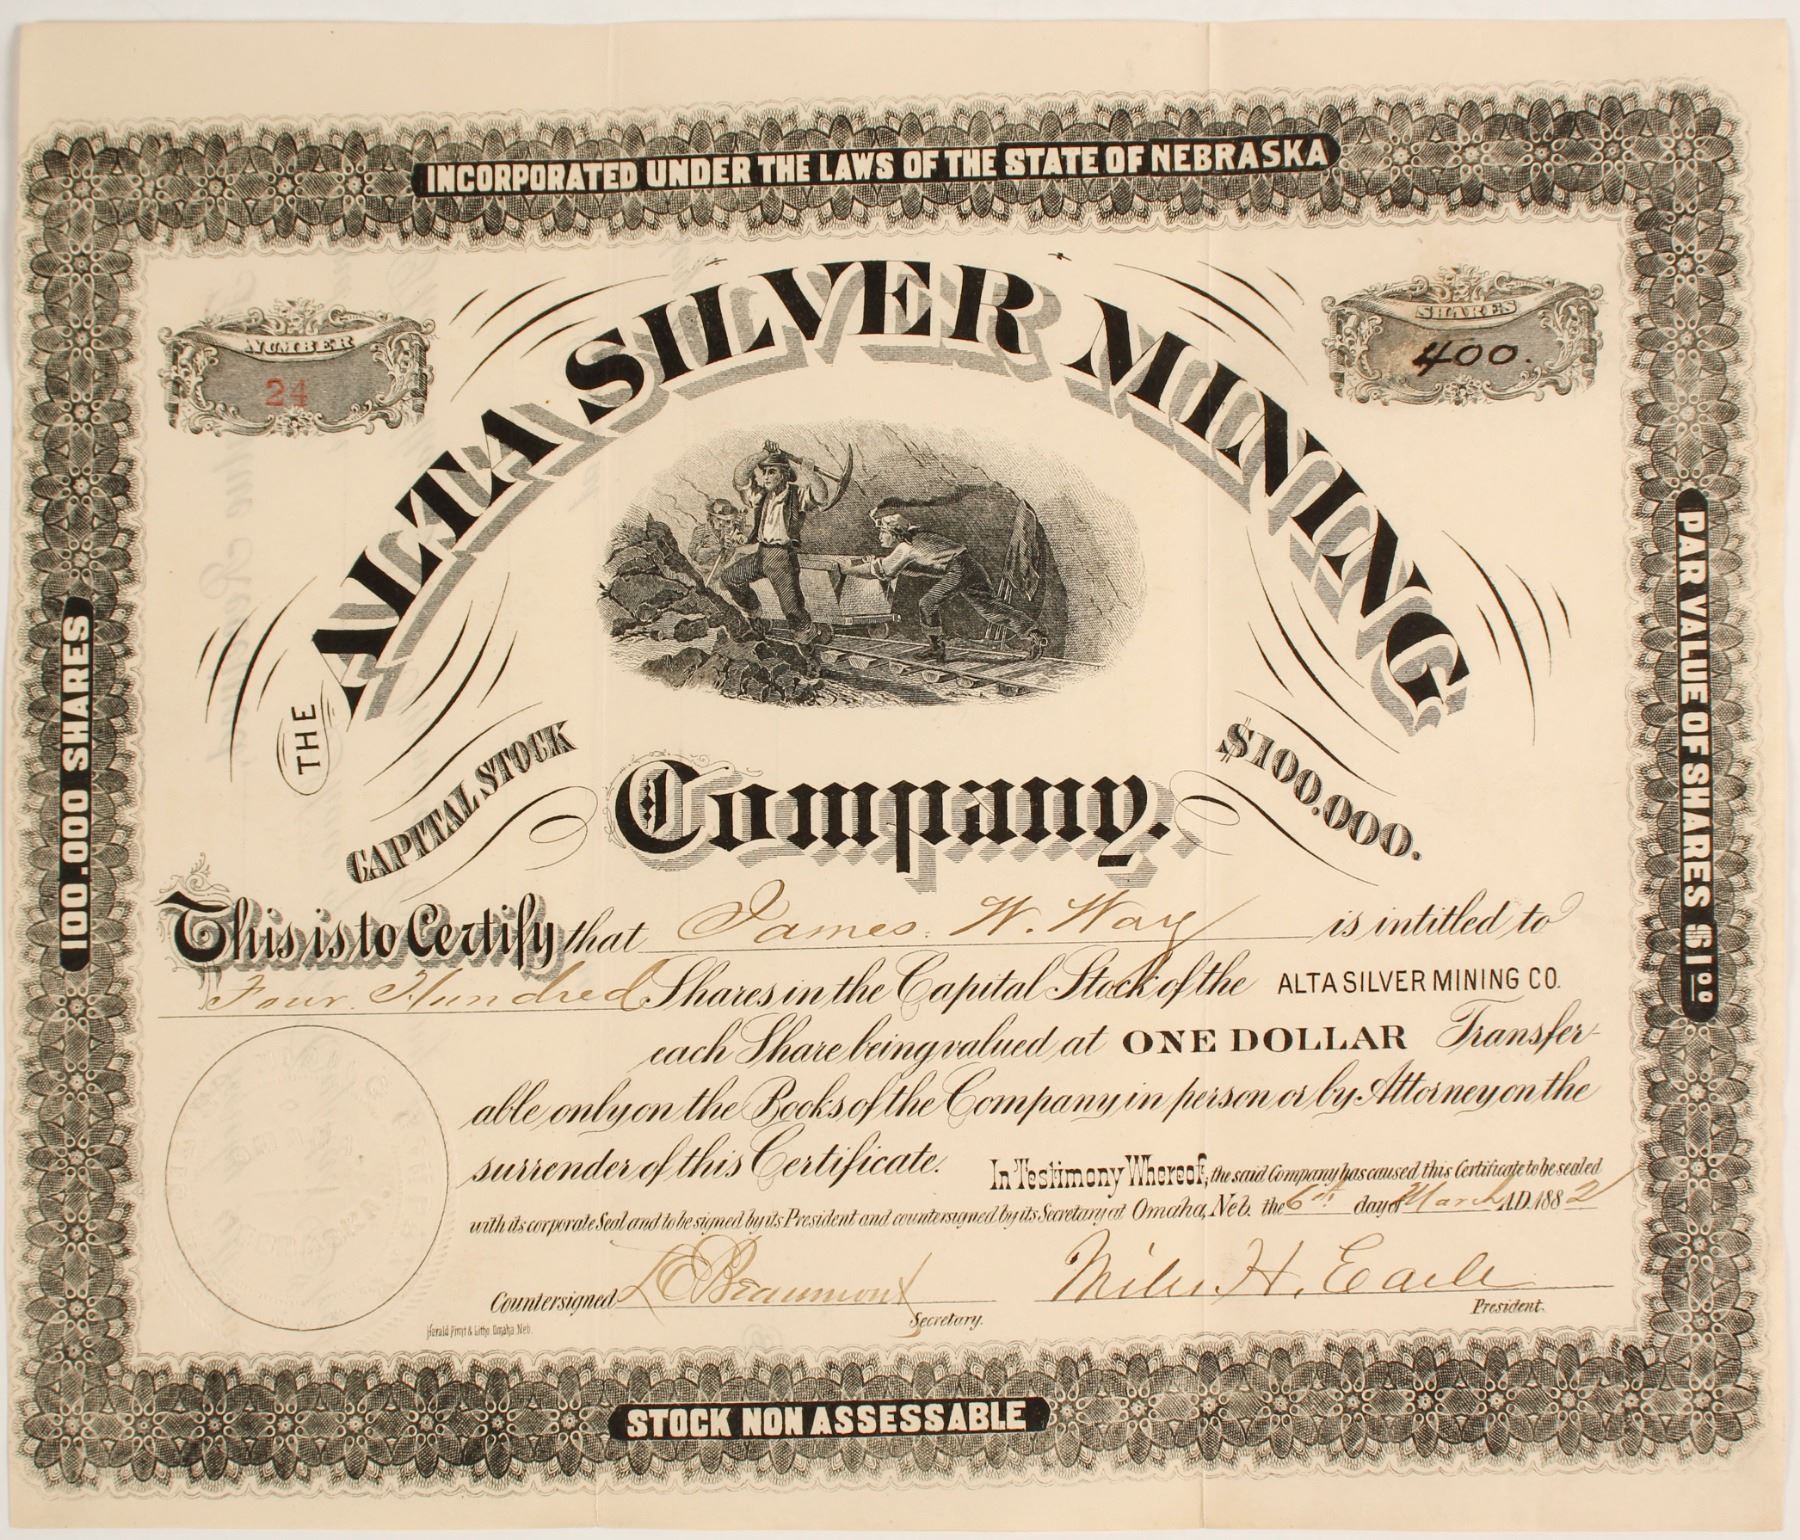 INCORPORATED UNDER THE LAWS OF THE STATE OF NEBRASKA
NUMBER
24
SHARES
400.
THE
ALTA SILVER MINING
CAPITAL STOCK
$100.000.
Company.
100.000 SHARES
PAR VALUE OF SHARES $1.00
This is to Certify that James. W. Way is intitled to
Four Hundred Shares in the Capital Stock of the ALTA SILVER MINING CO.
each Share being valued at ONE DOLLAR Transfer-
able only on the Books of the Company in person or by Attorney on the
surrender of this Certificate. In Testimony Whereof, the said Company has caused this Certificate to be sealed
with its corporate Seal and to be signed by its President and countersigned by its Secretary at Omaha, Neb. the 6th day of March A.D. 1882
Countersigned L C Beaumont Secretary.
Miles H. Earle President.
Herald Print & Litho Omaha Neb.
STOCK NON ASSESSABLE